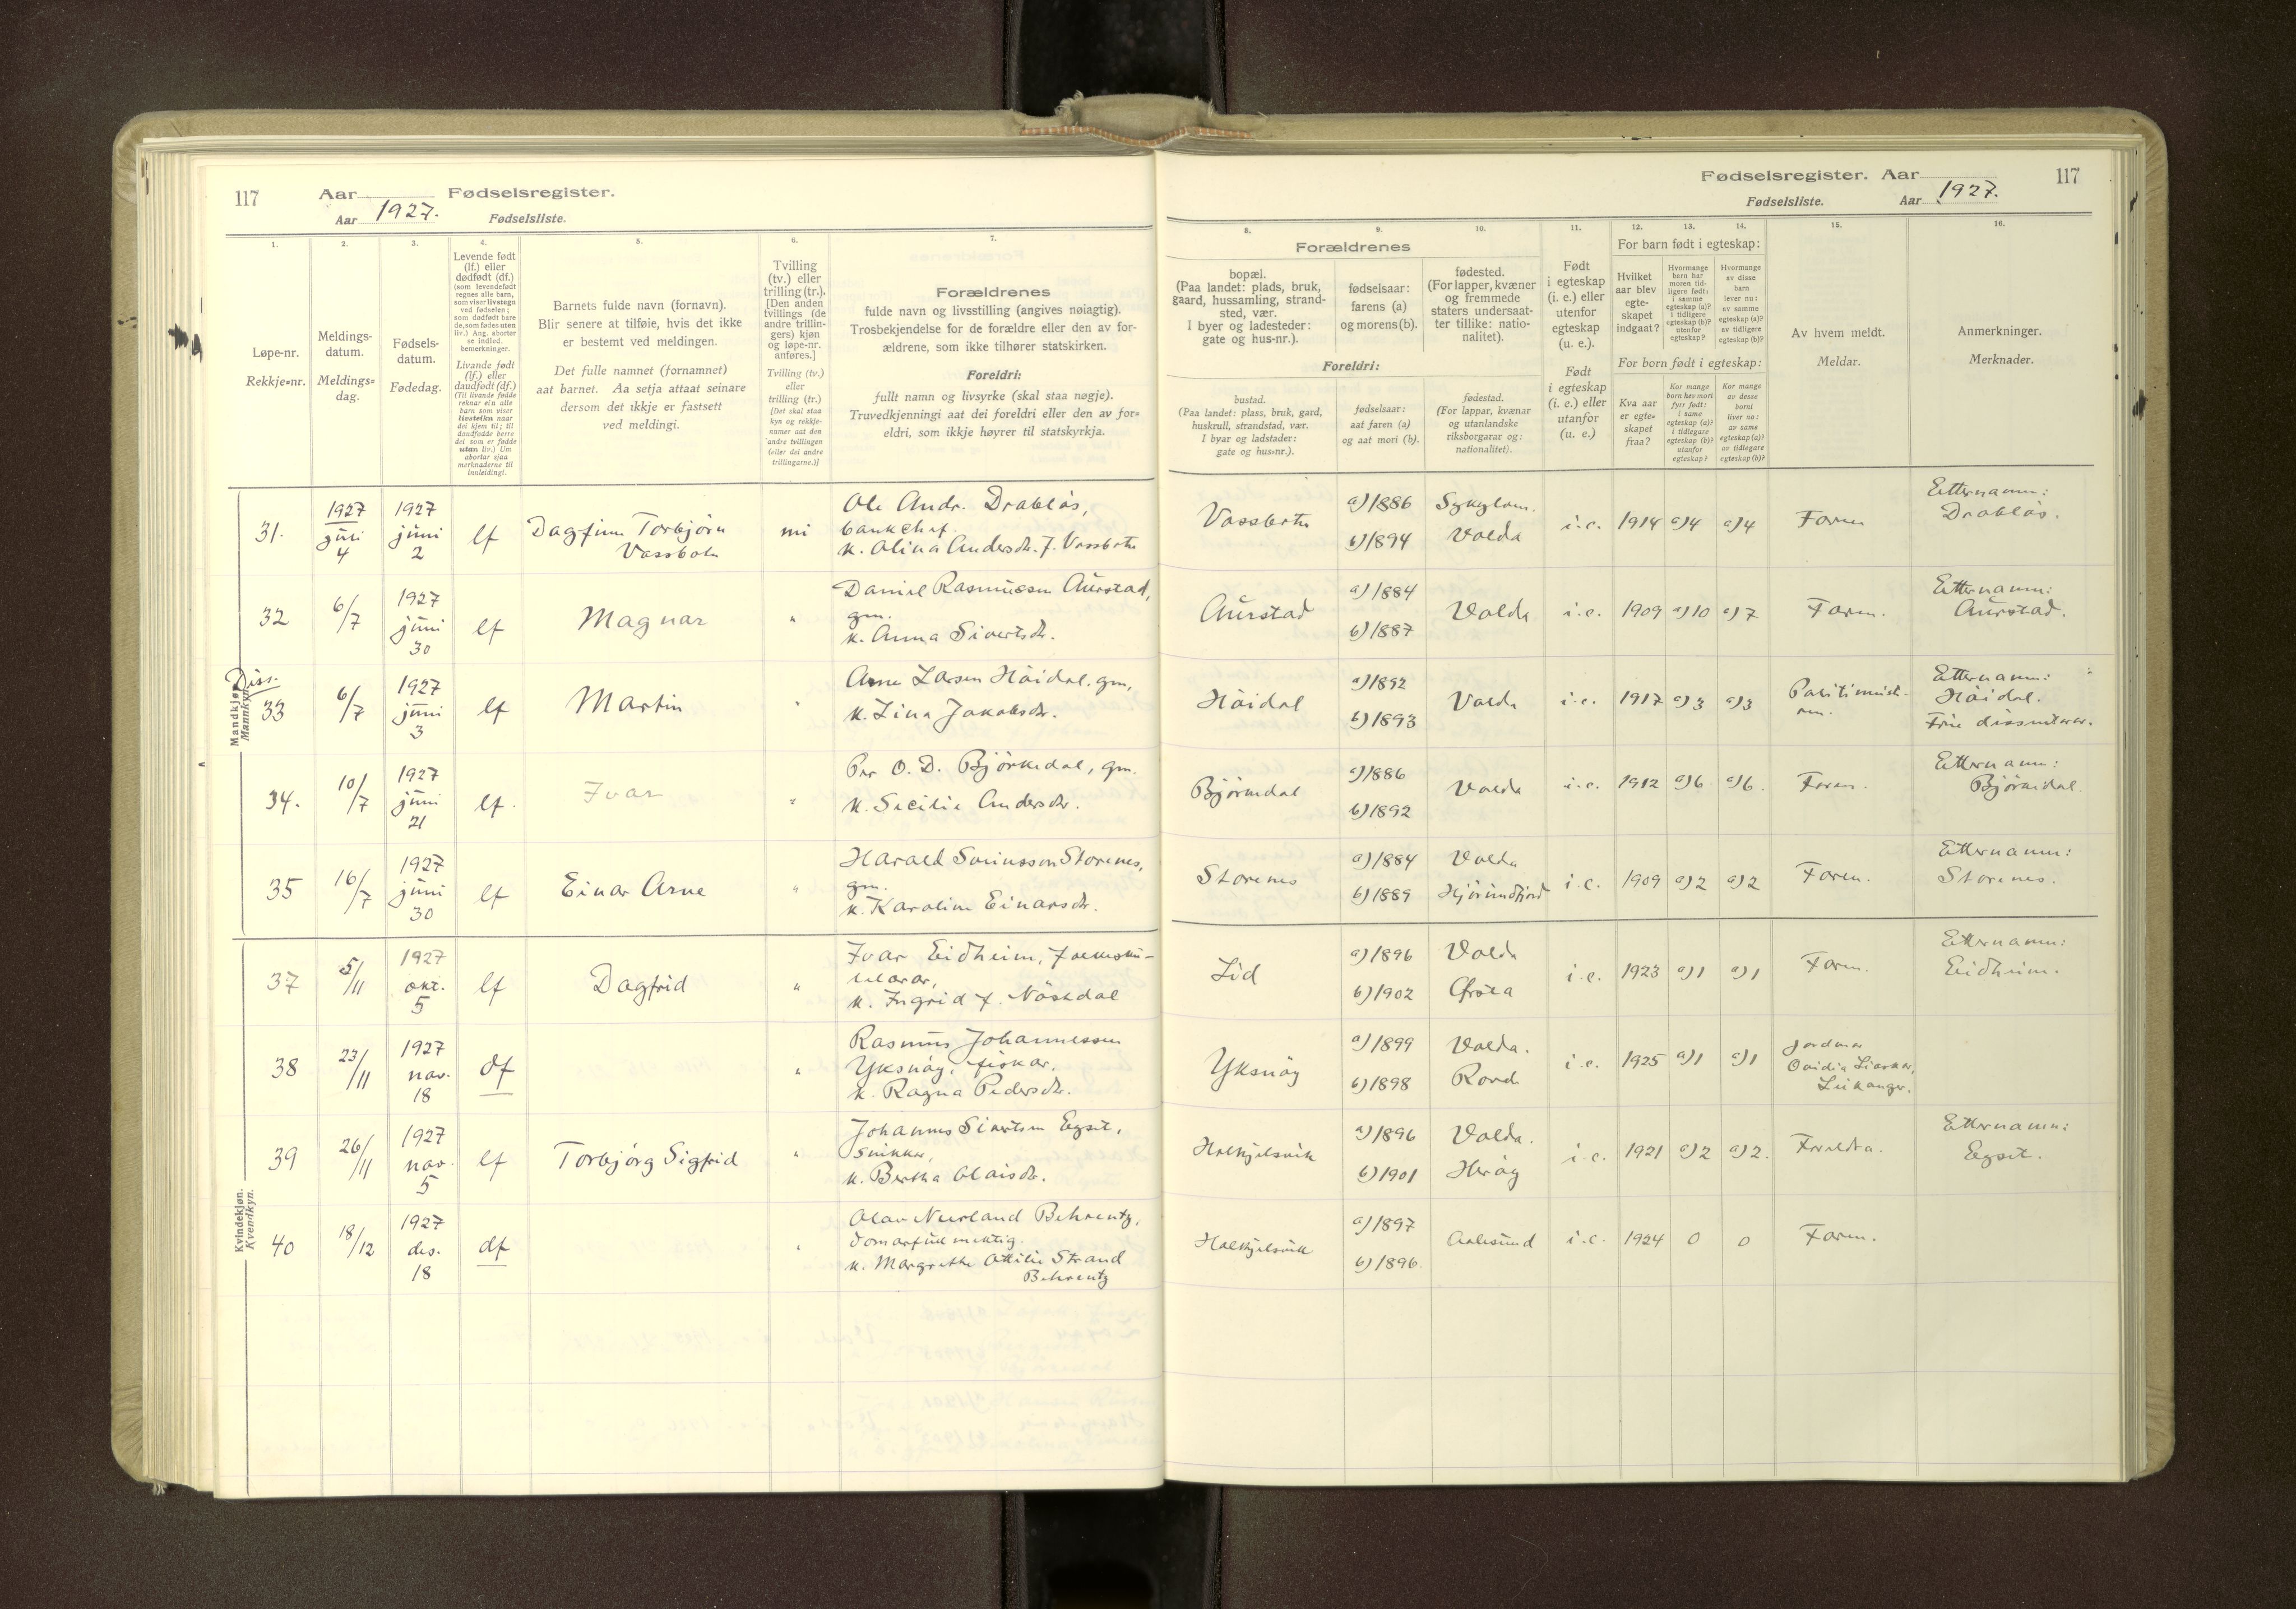 117 Aar Fødselsregister.
Aar 1927. Fødselsliste.
Fødselsregister. Aar 117
Fødselsliste. Aar 1927.
1. 2. 3. 4. 5. 6. 7.
Løpe-nr.
Rekkje-nr.
Meldings-
datum.
Meldings-
dag.
Fødsels-
datum.
Fødedag.
Levende født
(lf.) eller
dødfødt (df.)
(som levendefødt
regnes alle barn,
som viser livstegn
ved fødselen;
som dødfødt bare
de, som fødes uten
liv.) Ang. aborter
se indled.
bemerkninger.
Livande født
(lf.) eller
daudfødt (df.)
(Til livande fødde
reknar ein alle
barn som viser
livsteikn naar
dei kjem til; til
daudfødde berre
dei som er fødde
utan liv.) Um
abortar sjaa
merknaderne til
innleidingi.
Barnets fulde navn (fornavn).
Blir senere at tilføie, hvis det ikke
er bestemt ved meldingen.
Det fulle namnet (fornamnet)
aat barnet. Aa setja attaat seinare
dersom det ikkje er fastsett
ved meldingi.
Tvilling
(tv.) eller
trilling (tr.).
[Den anden
tvillings (de
andre trillin-
gers) kjøn
og løpe-nr.
anføres.]
Tvilling (tv.)
eller
trilling (tr.)
[Det skal staa
kyn og rekkje-
numer aat den
andre tvillingen
(eller dei andre
trillingarne.)]
Forældrenes
fulde navn og livsstilling (angives nøiagtig).
Trosbekjendelse for de forældre eller den av for-
ældrene, som ikke tilhører statskirken.
Foreldri:
fullt namn og livsyrke (skal staa nøgje).
Truvedkjenningi aat dei foreldri eller den av for-
eldri, som ikkje høyrer til statskyrkja.
8. 9. 10. 11. 12. 13. 14. 15. 16.
Forældrenes
bopæl.
(Paa landet: plads, bruk,
gaard, hussamling, strand-
sted, vær.
I byer og ladesteder:
gate og hus-nr.).
fødselsaar:
farens (a)
og morens (b).
fødested.
(For lapper, kvæner
og fremmede
staters undersaat-
ter tillike: natio-
nalitet).
Foreldri:
bustad.
(Paa landet: plass, bruk, gard,
huskrull, strandstad, vær.
I byar og ladstader:
gate og hus-nr.).
fødselsaar:
aat faren (a)
og aat mori (b).
fødestad.
(For lappar, kvænar
og utanlandske
riksborgarar og:
nationalitet).
Født
i egteskap
(i. e.) eller
utenfor
egteskap
(u. e.).
Født
i egteskap
(i. e.) eller
utanfor
(u. e.)
For barn født i egteskap:
Hvilket
aar blev
egte-
skapet
indgaat?
Hvormange
barn har
moren tid-
ligere født:
i samme
egteskap (a)?
i tidligere
egteskap (b)?
utenfor
egteskap?
Hvormange
av disse
barn
lever nu:
av samme
egteskap (a)?
av tidligere
egteskap (b)?
For born født i egteskap:
Kva aar
er egte-
skapet
fraa?
Kor mange
born hev mori
fyrr født:
i same
egteskap (a)?
i tidlegare
egteskap (b)?
utanfor
egteskap?
Kor mange
av desse
borni
liver no:
av same
egteskap (a)?
av tidlegare
egteskap (b)?
Av hvem meldt.
Meldar.
Anmerkninger.
Merknader.
Mandkjøn.
Mannkyn.
31. 1927 juli 4 1927 juni 2 lf Dagfinn Torbjörn Vassbotn nei
Ole Andr. Drabløs,
bankchef.
k. Olina Andersdr. f. Vassbotn
Vassbotn a) 1886 b) 1894 Sykylven. Volda i.e. 1914 a) 4 a) 4 Faren
Etternamn:
Drabløs.
32 6/7 1927 juni 30 lf Magnar "
Daniel Rasmussen Aurstad,
gm.
k. Anna Sivertsdr.
Aurstad a) 1884 b) 1887 Volda i.e. 1909 a) 10 a) 7 Faren.
Etternamn:
Aurstad.
Diss.
33 6/7 1927 juni 3 lf Martin "
Arne Larsen Höidal, gm,
k. Lina Jakobsdr.
Höidal a) 1892 b) 1893 Volda i.e. 1917 a) 3 a) 3
Etternamn:
Höidal.
Frie dissenterar.
34. 10/7 1927 juni 21 lf. Ivar "
Per O. D. Björkedal, gm.
k. Secilie Andersdr.
Björkedal a) 1886 b) 1892 Volda i.e. 1912 a) 6 a) 6. Faren.
Etternamn:
Björkedal.
35 16/7 1927 juni 30 lf Einar Arne "
Harald Sveinsson Storenes,
gm.
k. Karoline Einarsdr.
Storenes a) 1884 b) 1889 Volda Hjörundfjord i.e. 1909 a) 2 a) 2 Faren.
Etternamn:
Storenes.
Kvindekjøn.
Kvendkyn.
37 5/11 1927 okt. 5 lf Dagfrid "
Ivar Eidheim, folkesku-
lelærar,
k. Ingrid f. Nöstdal
Lid a) 1896 b) 1902 Volda Örsta i.e. 1923 a) 1 a) 1 Faren.
Etternamn:
Eidheim.
38 23/11 1927 nov. 18 df "
Rasmus Johannessen
Yksnöy, fiskar.
k. Ragna Pedersdr.
Yksnöy a) 1899 b) 1898 Volda. Rovde i.e. 1925 a) 1 a) 1
Jordmor
Ovidia
Leikanger.
39 26/11 1927 nov. 5 lf Torbjørg Sigfrid "
Johannes Sivertsen Egset,
snikkar,
k. Bertha Olaisdr.
Halkjelsvik a) 1896 b) 1901 Volda. Heröy i.e. 1921 a) 2 a) 2. Foreldra.
Etternamn:
Egset.
40 18/12 1927 des. 18 df "
Olav Neerland Behrentz,
domarfullmektig.
k. Margrethe Ottilie Strand
Behrentz
Halkjelsvik a) 1897 b) 1896 Aalesund i.e. 1924 0 0 Faren.